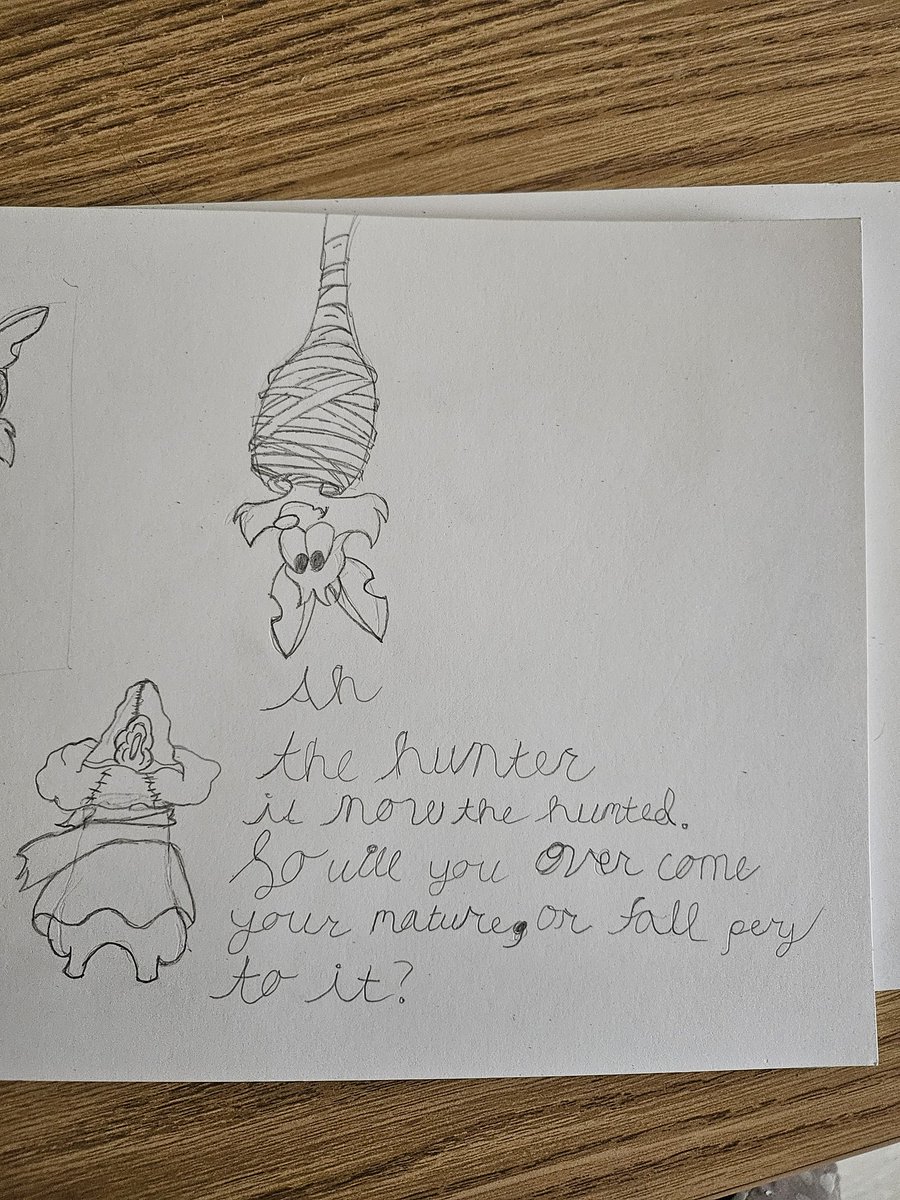 Ah
the hunter
is now the hunted.
So will you over come
your nature, or fall pery
to it?